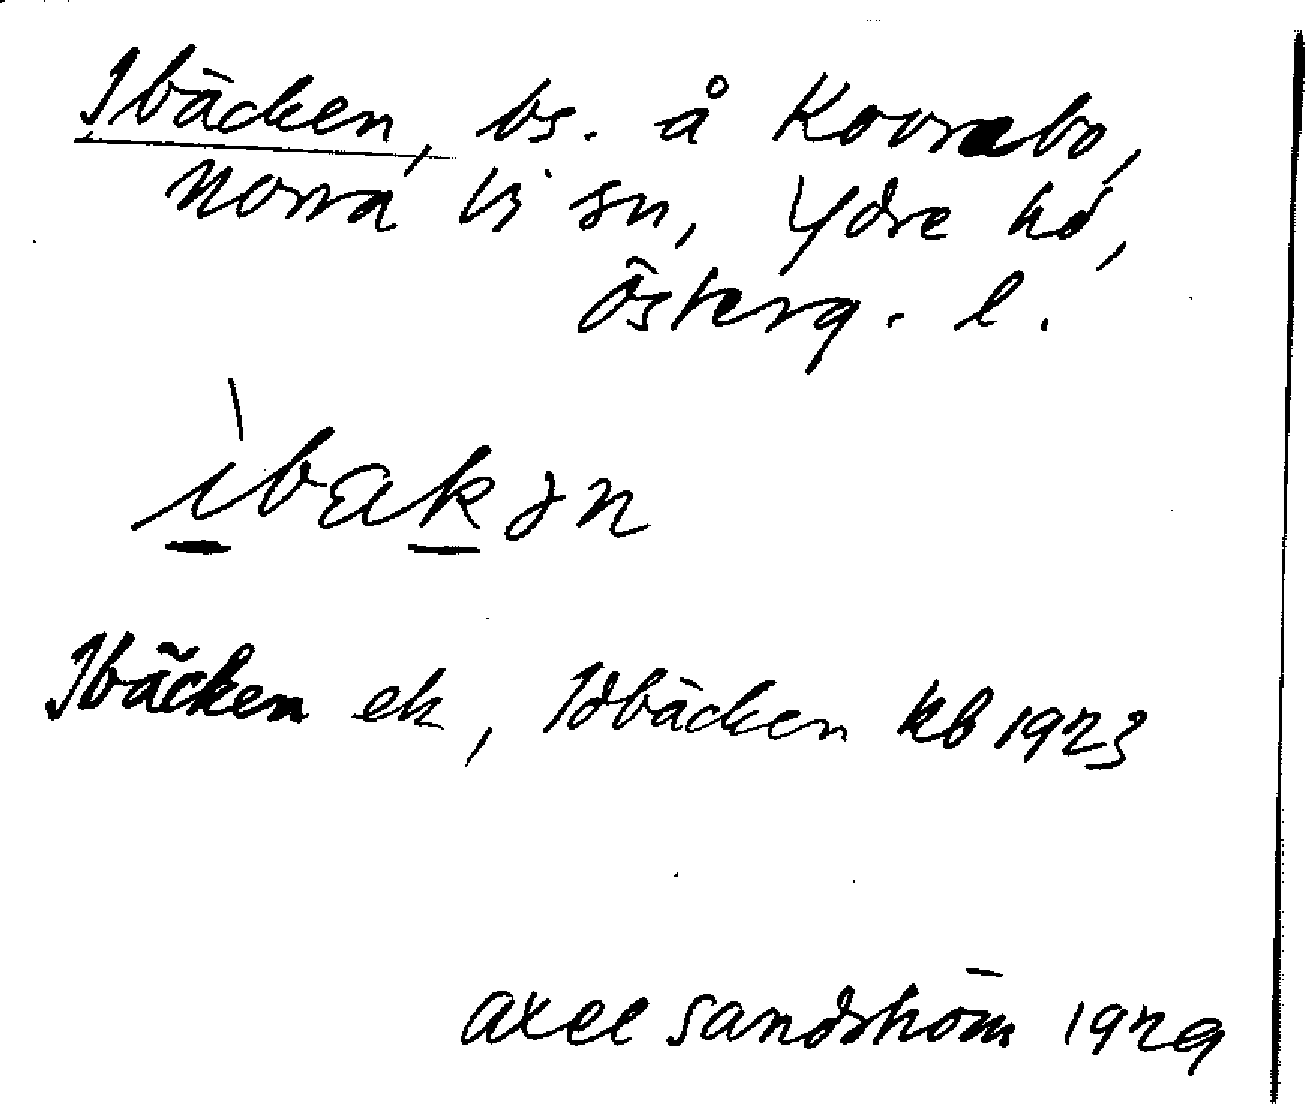 Ibäcken, bs. å Kovrabo,
Norra Vi sn, Ydre hd,
Österg. l.
ìbakən
Ibäcken ek, Idbäcken kb 1923
Axel Sandström 1929